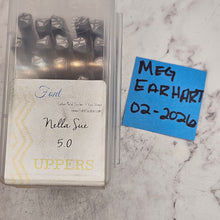 Ford
Nella Sue
5.0
UPPERS
MEG
EARHART
02-2026